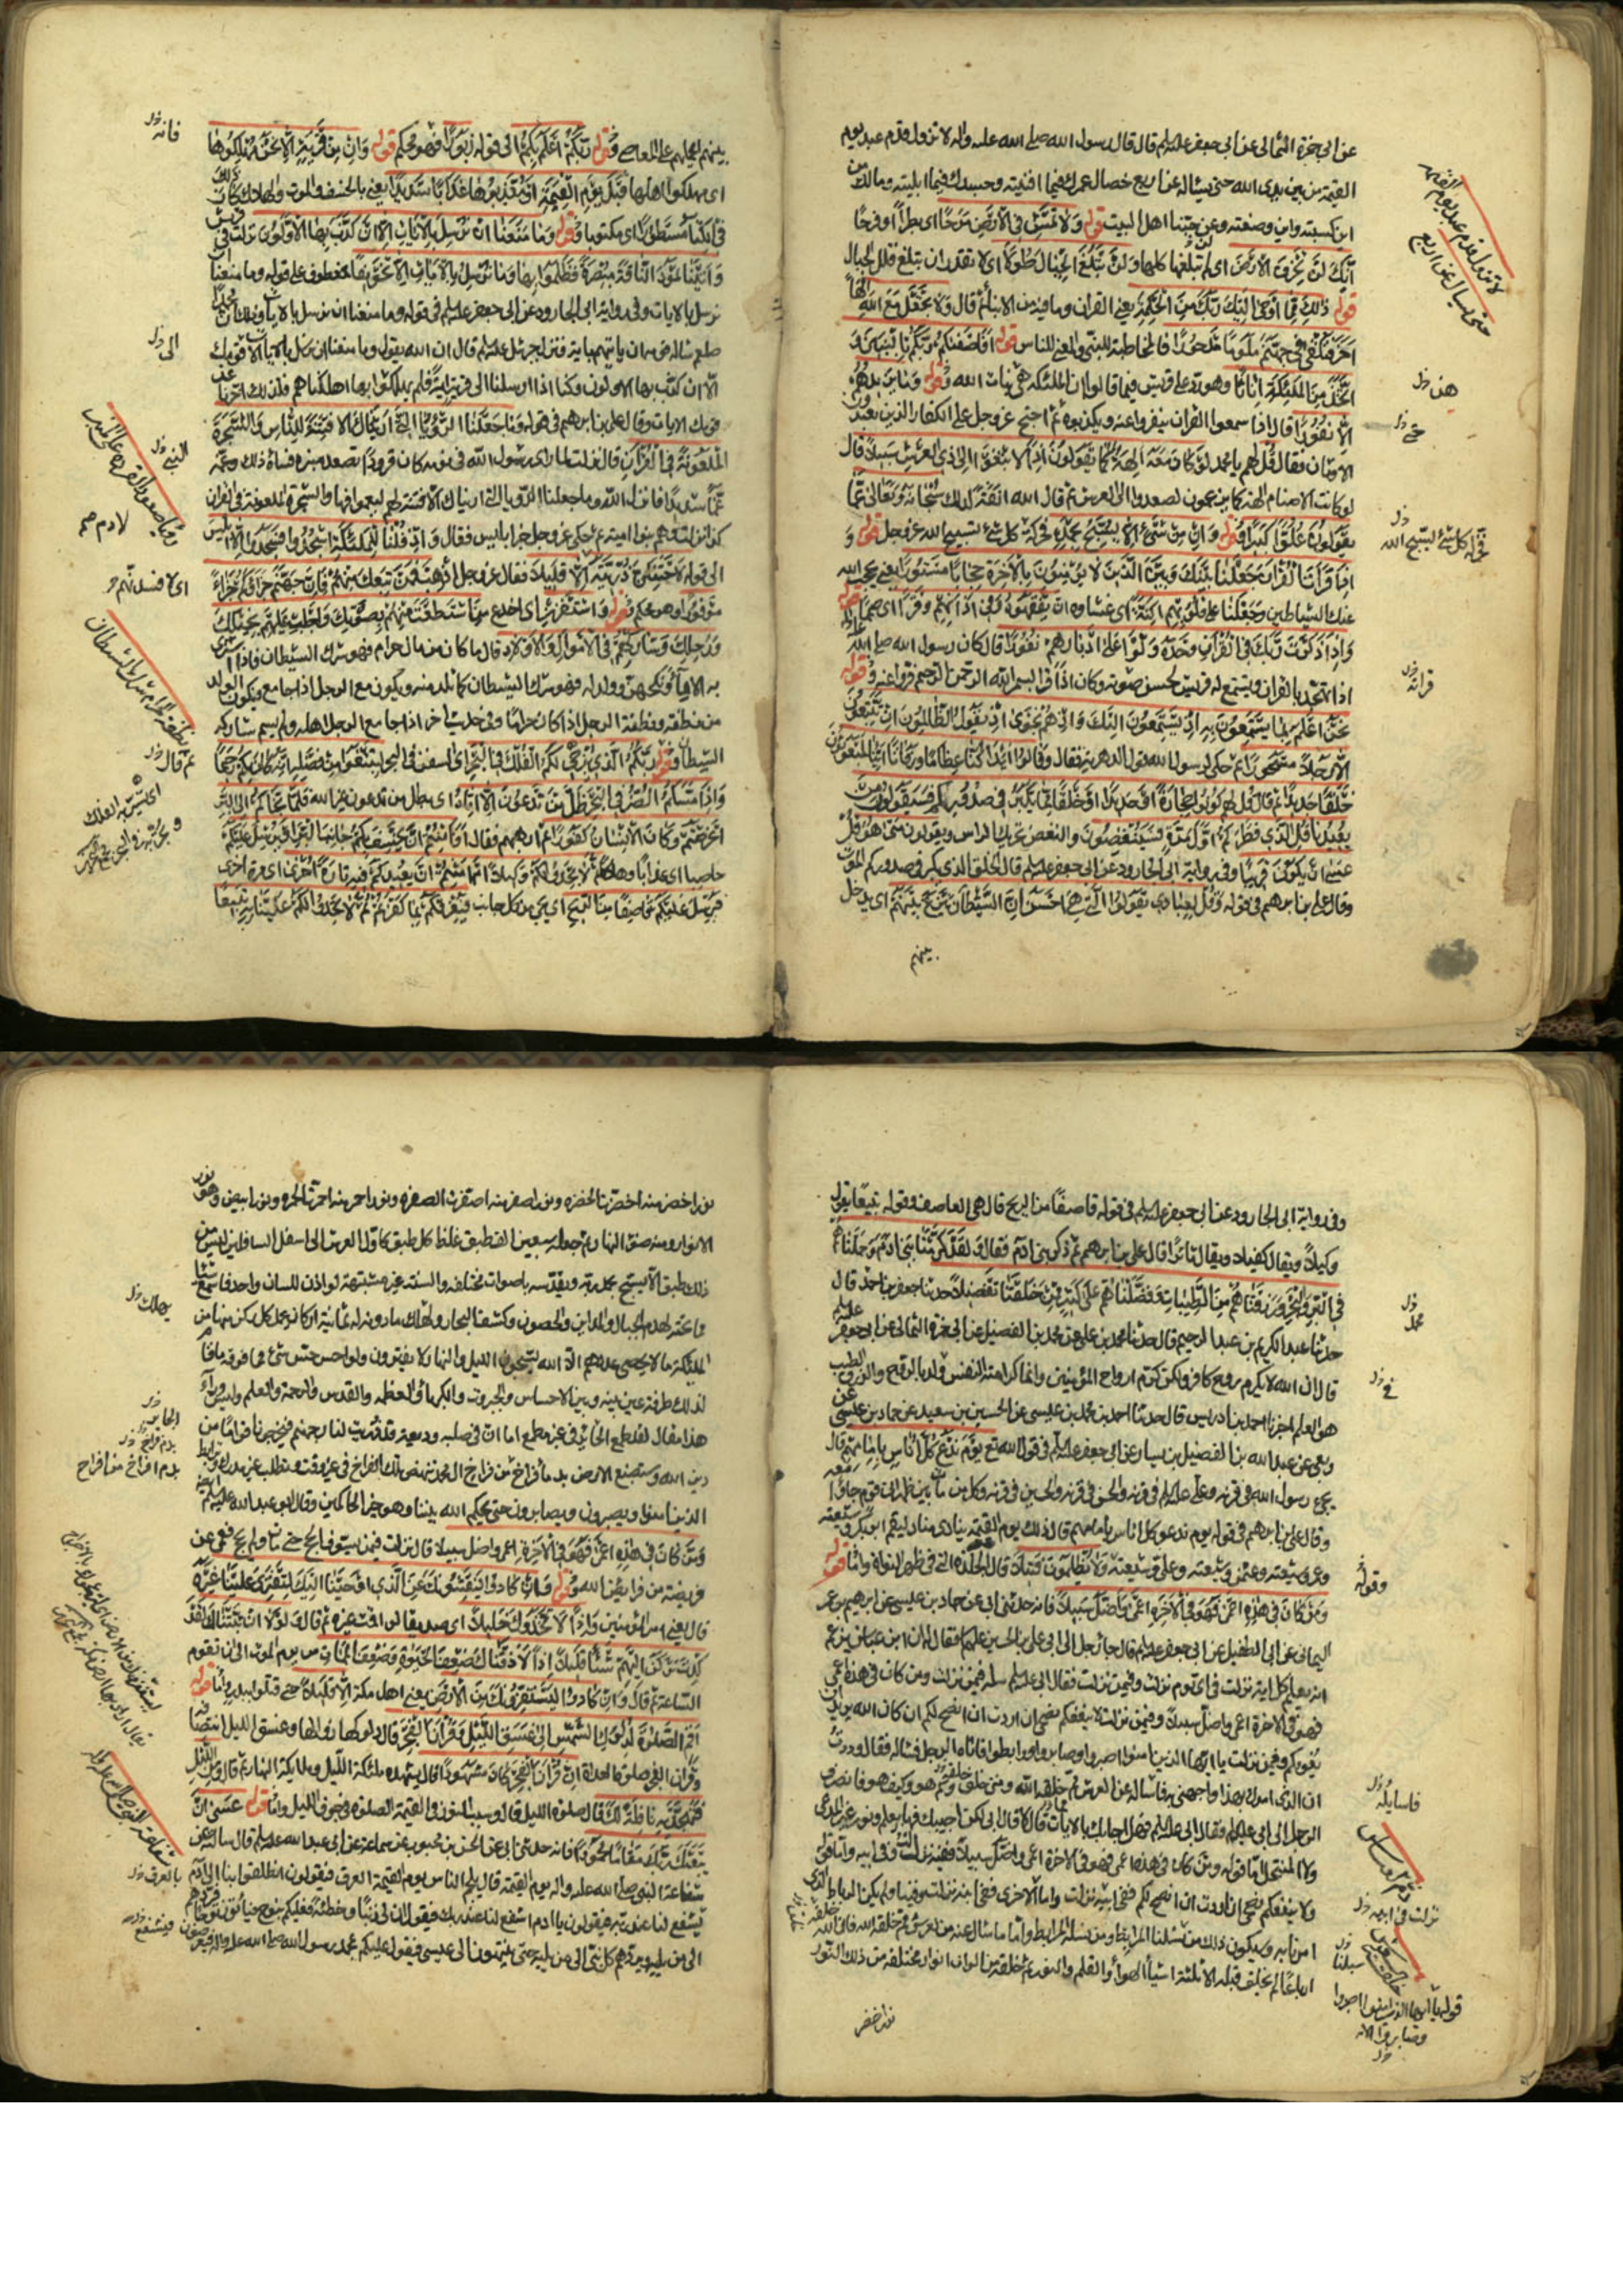 عن ابى حمزة الثمالى عن ابى جعفر عليه السلم قال قال رسول الله صلى الله عليه واله لا تزول قدم عبد يوم
القيمة من بين يدى الله حتى يساله عن اربع خصال عمرك فيما افنيته وجسدك فيما ابليته ومالك من
اين كسبته واين وضعته وعن حبنا اهل البيت قوله وَلَا تَمْشِ فِى الْاَرْضِ مَرَحًا اى بطرا او فرحا
اِنَّكَ لَنْ تَخْرِقَ الْاَرْضَ اى لم تبلغها كلها وَلَنْ تَبْلُغَ الْجِبَالَ طُولًا اى لا تقدر ان تبلغ قلل الجبال
قوله ذٰلِكَ مِمَّا اَوْحٰى اِلَيْكَ رَبُّكَ مِنَ الْحِكْمَةِ يعنى القران وما فيه من الانباء ثم قال وَلَا تَجْعَلْ مَعَ اللهِ اِلٰهًا
اٰخَرَ فَتُلْقٰى فِى جَهَنَّمَ مَلُومًا مَدْحُورًا فالمخاطبة للنبى والمعنى للناس قوله اَفَاَصْفٰيكُمْ رَبُّكُمْ بِالْبَنِينَ وَ
اتَّخَذَ مِنَ الْمَلٰئِكَةِ اِنَاثًا وهو رد على قريش فيما قالوا ان الملئكة هى بنات الله قوله وَمَا يَزِيدُهُمْ
اِلَّا نُفُورًا قال اذا سمعوا القران ينفروا عنه ويكذبوه ثم احتج عز وجل على الكفار الذين يعبدون
الاوثان فقال قُلْ لهم يا محمد لَوْ كَانَ مَعَهُ اٰلِهَةٌ كَمَا يَقُولُونَ اِذًا لَابْتَغَوْا اِلٰى ذِى الْعَرْشِ سَبِيلًا قال
لو كانت الاصنام الهة كما يزعمون لصعدوا الى العرش ثم قال الله انفة لذلك سُبْحَانَهُ وَتَعَالٰى عَمَّا
يَقُولُونَ عُلُوًّا كَبِيرًا قوله وَاِنْ مِنْ شَىْءٍ اِلَّا يُسَبِّحُ بِحَمْدِهِ فحركة كل شئ تسبيح الله عز وجل قوله وَ
اِذَا قَرَاْتَ الْقُرْاٰنَ جَعَلْنَا بَيْنَكَ وَبَيْنَ الَّذِينَ لَا يُؤْمِنُونَ بِالْاٰخِرَةِ حِجَابًا مَسْتُورًا يعنى يحجب الله
عنك الشياطين وَجَعَلْنَا عَلٰى قُلُوبِهِمْ اَكِنَّةً اى غشاوة اَنْ يَفْقَهُوهُ وَفِى اٰذَانِهِمْ وَقْرًا اى صمما قوله
وَاِذَا ذَكَرْتَ رَبَّكَ فِى الْقُرْاٰنِ وَحْدَهُ وَلَّوْا عَلٰى اَدْبَارِهِمْ نُفُورًا قال كان رسول الله صلى الله عليه واله
اذا تهجد بالقران ويستمع له قريش لحسن صوته وكان اذا قرا بسم الله الرحمن الرحيم فروا عنه قوله
نَحْنُ اَعْلَمُ بِمَا يَسْتَمِعُونَ بِهِ اِذْ يَسْتَمِعُونَ اِلَيْكَ وَاِذْ هُمْ نَجْوٰى اِذْ يَقُولُ الظَّالِمُونَ اِنْ تَتَّبِعُونَ
اِلَّا رَجُلًا مَسْحُورًا ثم حكى لرسول الله قول الدهرية فقال وَقَالُوا اَئِذَا كُنَّا عِظَامًا وَرُفَاتًا اَئِنَّا لَمَبْعُوثُونَ
خَلْقًا جَدِيدًا ثم قال قُلْ لهم كُونُوا حِجَارَةً اَوْ حَدِيدًا اَوْ خَلْقًا مِمَّا يَكْبُرُ فِى صُدُورِكُمْ فَسَيَقُولُونَ مَنْ
يُعِيدُنَا قُلِ الَّذِى فَطَرَكُمْ اَوَّلَ مَرَّةٍ فَسَيُنْغِضُونَ والنغض تحريك الراس ويقولون متى هو قُلْ
عَسٰى اَنْ يَكُونَ قَرِيبًا وفى رواية ابى الجارود عن ابى جعفر عليه السلم قال الخلق الذى يكبر فى صدوركم الموت
وقال على بن ابرهيم فى قوله وَقُلْ لِعِبَادِى يَقُولُوا الَّتِى هِىَ اَحْسَنُ اِنَّ الشَّيْطَانَ يَنْزَغُ بَيْنَهُمْ اى يدخل
بينهم
لا تزول قدم عبد يوم القيمة
حتى يسال عن اربع
هذا
حركة كل شئ تسبيح الله
قرائة
بينهم يحملهم على المعاصى قوله رَبُّكُمْ اَعْلَمُ بِكُمْ الى قوله زَبُورًا فهو محكم قوله وَاِنْ مِنْ قَرْيَةٍ اِلَّا نَحْنُ مُهْلِكُوهَا
اى مهلكوا اهلها قَبْلَ يَوْمِ الْقِيٰمَةِ اَوْ مُعَذِّبُوهَا عَذَابًا شَدِيدًا يعنى بالخسف والموت والهلاك كَانَ ذٰلِكَ
فِى الْكِتَابِ مَسْطُورًا اى مكتوبا قوله وَمَا مَنَعَنَا اَنْ نُرْسِلَ بِالْاٰيَاتِ اِلَّا اَنْ كَذَّبَ بِهَا الْاَوَّلُونَ نزلت فى قريش
وَاٰتَيْنَا ثَمُودَ النَّاقَةَ مُبْصِرَةً فَظَلَمُوا بِهَا وَمَا نُرْسِلُ بِالْاٰيَاتِ اِلَّا تَخْوِيفًا معطوف على قوله وما منعنا ان
نرسل بالايات وفى رواية ابى الجارود عن ابى جعفر عليه السلم فى قوله وما منعنا ان نرسل بالايات وذلك ان محمدا
صلعم ساله قومه ان ياتيهم باية فنزل جبرئيل عليه السلم قال ان الله يقول وما منعنا ان نرسل بالايات الى قومك
الا ان كذب بها الاولون وكنا اذا ارسلنا الى قرية اية فلم يؤمنوا بها اهلكناهم فلذلك اخرنا عن
قومك الايات وقال على بن ابرهيم فى قوله وَمَا جَعَلْنَا الرُّؤْيَا الَّتِى اَرَيْنَاكَ اِلَّا فِتْنَةً لِلنَّاسِ وَالشَّجَرَةَ
الْمَلْعُونَةَ فِى الْقُرْاٰنِ قال نزلت لما راى رسول الله فى نومه كان قرودا تصعد منبره فساءه ذلك وغمه
غما شديدا فانزل الله وما جعلنا الرؤيا التى اريناك الا فتنة لهم ليعمهوا فيها والشجرة الملعونة فى القران
كذا نزلت وهم بنو امية ثم حكى عز وجل خبر ابليس فقال وَاِذْ قُلْنَا لِلْمَلٰئِكَةِ اسْجُدُوا فَسَجَدُوا اِلَّا اِبْلِيسَ
الى قوله لَاَحْتَنِكَنَّ ذُرِّيَّتَهُ اِلَّا قَلِيلًا فقال عز وجل اِذْهَبْ فَمَنْ تَبِعَكَ مِنْهُمْ فَاِنَّ جَهَنَّمَ جَزَاؤُكُمْ جَزَاءً
مَوْفُورًا وهو محكم قوله وَاسْتَفْزِزْ اى اخدع مَنِ اسْتَطَعْتَ مِنْهُمْ بِصَوْتِكَ وَاَجْلِبْ عَلَيْهِمْ بِخَيْلِكَ
وَرَجِلِكَ وَشَارِكْهُمْ فِى الْاَمْوَالِ وَالْاَوْلَادِ قال ما كان من مال حرام فهو شرك الشيطان فاذا اشترى
به الاماء ونكحهن وولد له فهو شرك الشيطان كما تلد منه ويكون مع الرجل اذا جامع ويكون الولد
من نطفته ونطفة الرجل اذا كان حراما وفى حديث اخر اذا جامع الرجل اهله ولم يسم شاركه
الشيطان قوله رَبُّكُمُ الَّذِى يُزْجِى لَكُمُ الْفُلْكَ فِى الْبَحْرِ اى السفن فى البحر لِتَبْتَغُوا مِنْ فَضْلِهِ اِنَّهُ كَانَ بِكُمْ رَحِيمًا
وَاِذَا مَسَّكُمُ الضُّرُّ فِى الْبَحْرِ ضَلَّ مَنْ تَدْعُونَ اِلَّا اِيَّاهُ اى بطل من تدعون غير الله فَلَمَّا نَجَّاكُمْ اِلَى الْبَرِّ
اَعْرَضْتُمْ وَكَانَ الْاِنْسَانُ كَفُورًا ثم ارهبهم فقال اَفَاَمِنْتُمْ اَنْ يَخْسِفَ بِكُمْ جَانِبَ الْبَرِّ اَوْ يُرْسِلَ عَلَيْكُمْ
حاصبا اى عذابا وهلاكا ثُمَّ لَا تَجِدُوا لَكُمْ وَكِيلًا اَمْ اَمِنْتُمْ اَنْ يُعِيدَكُمْ فِيهِ تَارَةً اُخْرٰى اى مرة اخرى
فَيُرْسِلَ عَلَيْكُمْ قَاصِفًا مِنَ الرِّيحِ اى تجئ من كل جانب فَيُغْرِقَكُمْ بِمَا كَفَرْتُمْ ثُمَّ لَا تَجِدُوا لَكُمْ عَلَيْنَا بِهِ تَبِيعًا
فانه
الى
النبى
اى لافسدنهم
ثم قال
وفى رواية ابى الجارود عن ابى جعفر عليه السلم فى قوله قاصفا من الريح قال هى العاصف وقوله تبيعا يقول
وكيلا ويقال كفيلا ويقال ثائرا قال على بن ابرهيم ثم ذكر بنى ادم فقال وَلَقَدْ كَرَّمْنَا بَنِى اٰدَمَ وَحَمَلْنَاهُمْ
فِى الْبَرِّ وَالْبَحْرِ وَرَزَقْنَاهُمْ مِنَ الطَّيِّبَاتِ وَفَضَّلْنَاهُمْ عَلٰى كَثِيرٍ مِمَّنْ خَلَقْنَا تَفْضِيلًا حدثنا جعفر بن احمد قال
حدثنا عبد الكريم بن عبد الرحيم قال حدثنا محمد بن على عن محمد بن الفضيل عن ابى حمزة الثمالى عن ابى جعفر عليه السلم
قال ان الله لا يكرم روح كافر ولكن كرم ارواح المؤمنين وانما كرامة النفس والدم بالروح والرزق الطيب
هو العلم اخبرنا احمد بن ادريس قال حدثنا احمد بن محمد بن عيسى عن الحسين بن سعيد عن حماد بن عيسى عن
ربعى عن عبد الله بن الفضيل بن يسار عن ابى جعفر عليه السلم فى قول الله تع يَوْمَ نَدْعُو كُلَّ اُنَاسٍ بِاِمَامِهِمْ قال
يجئ رسول الله فى قرنه وعلى عليه السلم فى قرنه والحسن فى قرنه والحسين فى قرنه وكل من مات بين ظهرانى قوم جاؤا معه
وقال على بن ابرهيم فى قوله يوم ندعو كل اناس بامامهم قال ذلك يوم القيمة ينادى مناد ليقم ابو بكر وشيعته
وعمر وشيعته وعثمن وشيعته وعلى وشيعته وَلَا يُظْلَمُونَ فَتِيلًا قال الجلدة التى فى ظهر النواة واما قوله
وَمَنْ كَانَ فِى هٰذِهِ اَعْمٰى فَهُوَ فِى الْاٰخِرَةِ اَعْمٰى وَاَضَلُّ سَبِيلًا فانه حدثنى ابى عن حماد بن عيسى عن ابرهيم بن عمر
اليمانى عن ابى الطفيل عن ابى جعفر عليه السلم قال جاء رجل الى ابى على بن الحسين عليهما السلم فقال ان ابن عباس يزعم
انه يعلم كل اية نزلت فى اى يوم نزلت وفيمن نزلت فقال ابى عليه السلم سله فيمن نزلت ومن كان فى هذه اعمى
فهو فى الاخرة اعمى واضل سبيلا وفيمن نزلت لا ينفعكم نصحى ان اردت ان انصح لكم ان كان الله يريد ان
يغويكم وفيمن نزلت يا ايها الذين امنوا اصبروا وصابروا ورابطوا فاتاه الرجل فساله فقال وددت
ان الذى امرك بهذا واجهنى به فاساله عن العرش مم خلقه الله ومتى خلق وكم هو وكيف هو فانصرف
الرجل الى ابى عليه السلم فقال ابى عليه السلم فهل اجابك بالايات قال لا قال ابى لكن اجيبك فيها بعلم ونور غير المدعى
ولا المنتحل اما قوله ومن كان فى هذه اعمى فهو فى الاخرة اعمى واضل سبيلا ففيه نزلت وفى ابيه واما قوله
ولا ينفعكم نصحى ان اردت ان انصح لكم ففى ابيه نزلت واما الاخرى ففى ابيه نزلت وفينا ولم يكن الرباط الذى
امرنا به وسيكون ذلك من نسلنا المرابط ومن نسله المرابط واما ما سال عنه من العرش مم خلقه الله فان الله خلقه
ارباعا لم يخلق قبله الا ثلثة اشيا الهواء والقلم والنور ثم خلقه من الوان انوار مختلفة من ذلك النور
نور اخضر
محمد
فى
وقوله
فاسايله
ذم ابن عباس
نزلت وفى ابيه
خلقت العرش
قوله يا ايها الذين امنوا اصبروا
وصابروا الاية
نور اخضر منه اخضرت الخضرة ونور اصفر منه اصفرت الصفرة ونور احمر منه احمرت الحمرة ونور ابيض وهو نور
الانوار ومنه ضوء النهار ثم جعله سبعين الف طبق غلظ كل طبق كاول العرش الى اسفل السافلين ليس من
ذلك طبق الا يسبح بحمد ربه ويقدسه باصوات مختلفة والسنة غير مشتبهة لو اذن للسان واحد فاسمع شيئا
مما تحته لهدم الجبال والمداين والحصون وكشف البحار ولهلك ما دونه له ثمانية اركان يحمل كل ركن منها من
الملئكة ما لا يحصى عددهم الا الله يسبحون الليل والنهار لا يفترون ولو احس حس شئ مما فوقه ما قام
لذلك طرفة عين بينه وبين الاحساس والجبروت والكبرياء والعظمة والقدس والرحمة والعلم وليس وراء
هذا مقال لقد طمع الخائن فى غير مطمع اما ان فى صلبه وديعة قد ذرئت لنار جهنم فيخرجون اقواما من
دين الله وستصبغ الارض بدماء افراخ من افراخ ال محمد تنهض تلك الفراخ فى غير وقت وتطلب غير مدرك ويرابط
الذين امنوا ويصبرون ويصابرون حتى يحكم الله بيننا وهو خير الحاكمين وقال ابو عبد الله عليه السلم ايضا
وَمَنْ كَانَ فِى هٰذِهِ اَعْمٰى فَهُوَ فِى الْاٰخِرَةِ اعمى واضل سبيلا قال نزلت فيمن يسوف الحج حتى مات ولم يحج فعمى عن
فريضة من فرايض الله قوله وَاِنْ كَادُوا لَيَفْتِنُونَكَ عَنِ الَّذِى اَوْحَيْنَا اِلَيْكَ لِتَفْتَرِىَ عَلَيْنَا غَيْرَهُ
قال يعنى امير المؤمنين وَاِذًا لَاتَّخَذُوكَ خَلِيلًا اى صديقا لو اقمت غيره ثم قال وَلَوْلَا اَنْ ثَبَّتْنَاكَ لَقَدْ
كِدْتَ تَرْكَنُ اِلَيْهِمْ شَيْئًا قَلِيلًا اِذًا لَاَذَقْنَاكَ ضِعْفَ الْحَيٰوةِ وَضِعْفَ الْمَمَاتِ من يوم الموت الى ان تقوم
الساعة ثم قال وَاِنْ كَادُوا لَيَسْتَفِزُّونَكَ مِنَ الْاَرْضِ يعنى اهل مكة اِلَّا قَلِيلًا حتى قتلوا ببدر واما قوله
اَقِمِ الصَّلٰوةَ لِدُلُوكِ الشَّمْسِ اِلٰى غَسَقِ اللَّيْلِ وَقُرْاٰنَ الْفَجْرِ قال دلوكها زوالها وغسق الليل انتصافه
وقران الفجر صلوة الغداة اِنَّ قُرْاٰنَ الْفَجْرِ كَانَ مَشْهُودًا قال تشهده ملئكة الليل وملايكة النهار ثم قال وَمِنَ اللَّيْلِ
فَتَهَجَّدْ بِهِ نَافِلَةً لَكَ قال صلوة الليل قال وسبب النور فى القيمة الصلوة فى جوف الليل واما قوله عَسٰى اَنْ
يَبْعَثَكَ رَبُّكَ مَقَامًا مَحْمُودًا فانه حدثنى ابى عن الحسن بن محبوب عن سماعة عن ابى عبد الله عليه السلم قال سالته عن
شفاعة النبى صلى الله عليه واله يوم القيمة قال يلجم الناس يوم القيمة العرق فيقولون انطلقوا بنا الى ادم
يشفع لنا عند ربه فيقولون يا ادم اشفع لنا عند ربك فيقول ان لى ذنبا وخطيئة فعليكم بنوح فياتون نوحا فيردهم
الى من يليه ويردهم كل نبى الى من يليه حتى ينتهون الى عيسى فيقول عليكم بمحمد رسول الله صلى الله عليه واله
يهلك
الخاين
بالعرق
فيشفع